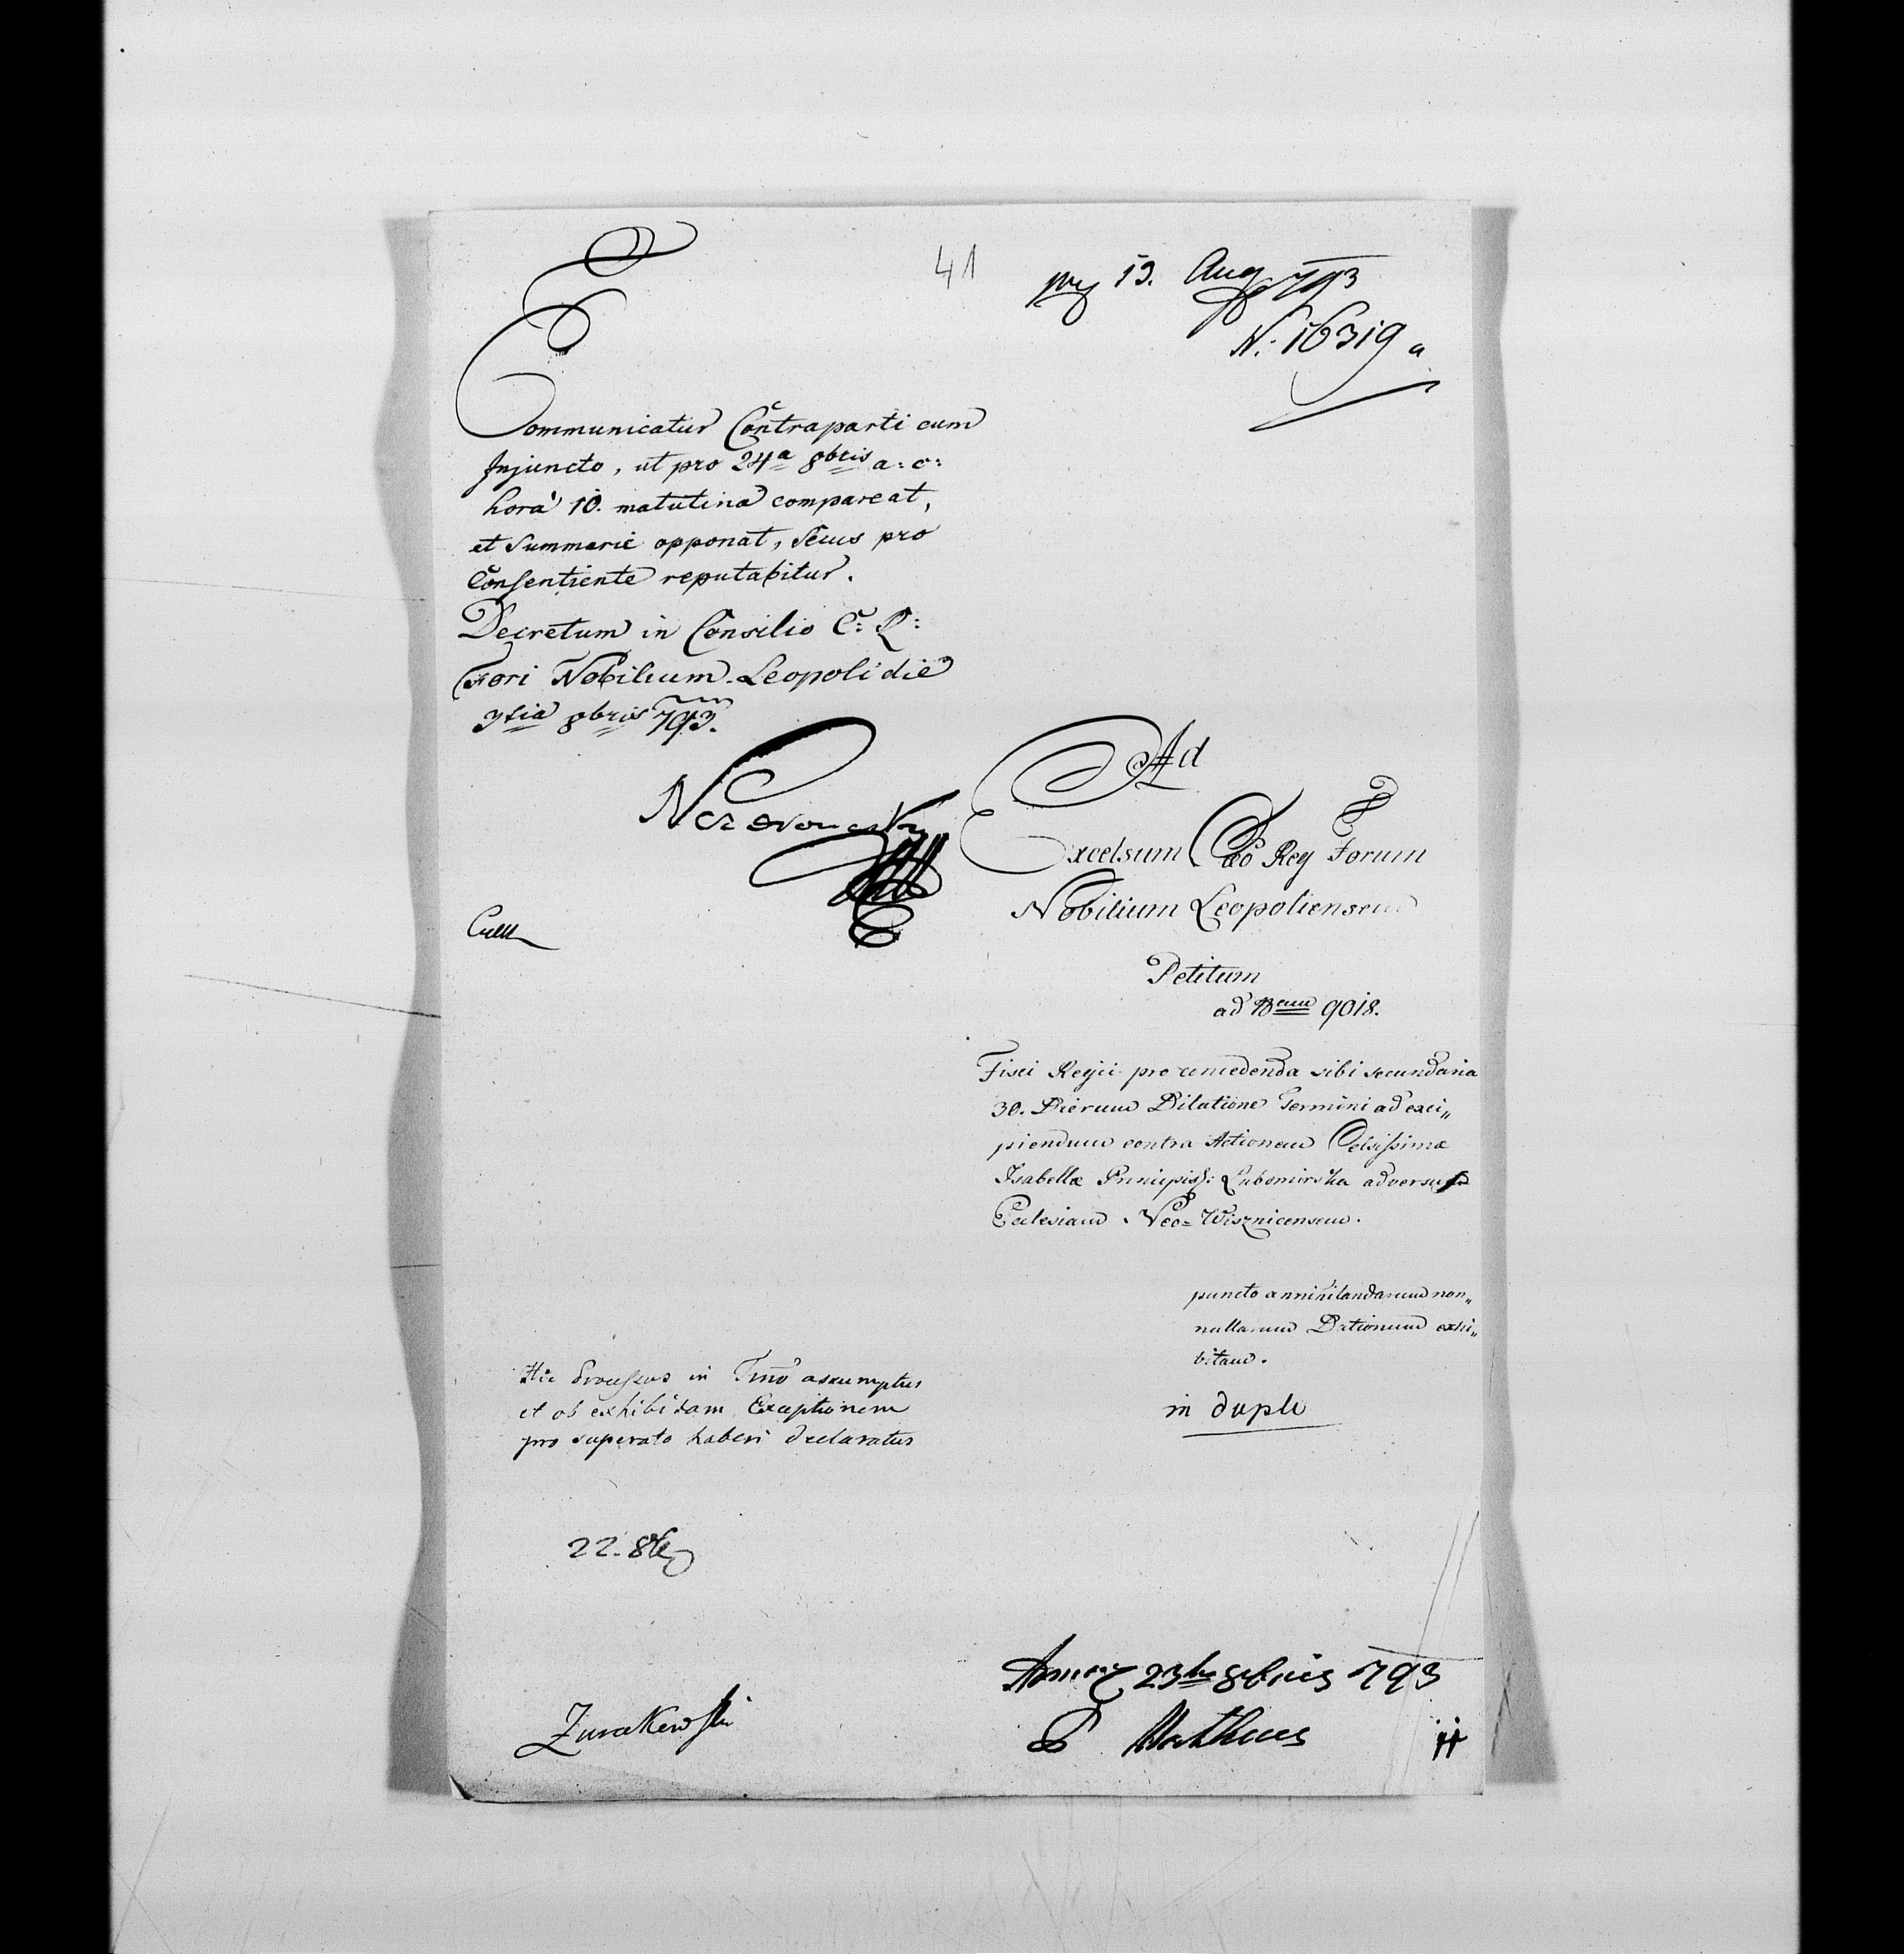 41
13. Aug 793
N. 16319 a
Communicatur Contraparti cum
Injuncto, ut pro 24ª 8bris a: c:
horà 10. matutina compareat,
et Summarie opponat, Secus pro
Consentiente reputabitur.
Decretum in Consilio C: R:
Fori Nobilium Leopoli die
3tia 8bris 793.
Ad
Excelsum Cæo Reg Forum
Nobilium Leopoliensem
Petitum
ad Num 9018.
Fisci Regii pro concedenda sibi secundaria
30. Dierum Dilatione Termini ad exci„
piendum contra Actionem Celsissimæ
Isabellæ Principiss: Lubomirska adversus
Ecclesiam Neo=Wisznicensem.
puncto annihilandarum non„
nullarum Dationum exhi„
bitam.
in duplo
Hic Processus in Tmno assumptus
et ob exhibitam Exceptionem
pro superato haberi declaratus
22. 8b
Zurakowski
23tia 8bris 793